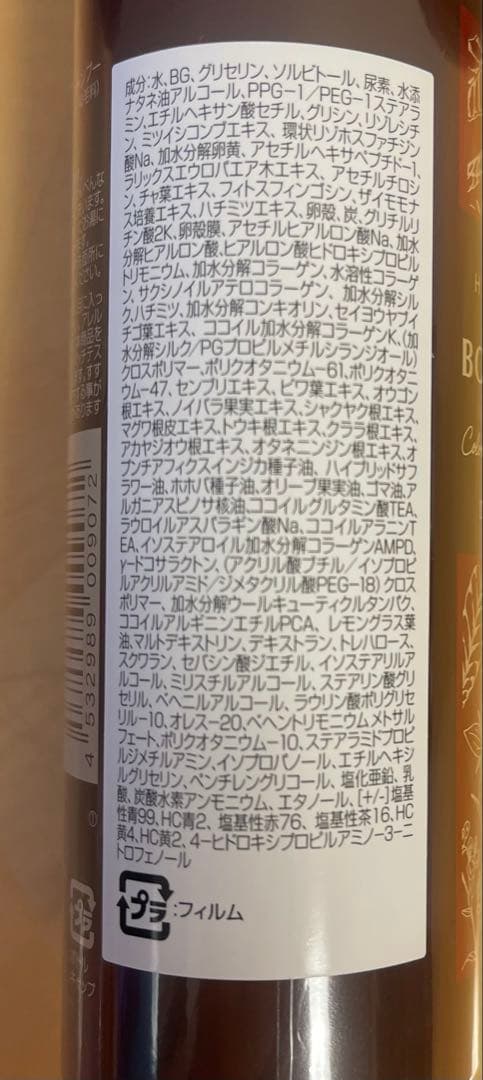 成分:水、BG、グリセリン、ソルビトール、尿素、水添
ナタネ油アルコール、PPG-1/PEG-1ステアラ
ミン、エチルヘキサン酸セチル、グリシン、リゾレシチ
ン、ミツイシコンブエキス、環状リゾホスファチジン
酸Na、加水分解卵黄、アセチルヘキサペプチド-1、
ラリックスエウロパエア木エキス、アセチルチロシ
ン、チャ葉エキス、フィトスフィンゴシン、ザイモモナ
ス培養エキス、ハチミツエキス、卵殻、炭、グリチルリ
チン酸2K、卵殻膜、アセチルヒアルロン酸Na、加水
分解ヒアルロン酸、ヒアルロン酸ヒドロキシプロピル
トリモニウム、加水分解コラーゲン、水溶性コラーゲ
ン、サクシノイルアテロコラーゲン、加水分解シル
ク、ハチミツ、加水分解コンキオリン、セイヨウヤブイ
チゴ葉エキス、ココイル加水分解コラーゲンK、(加
水分解シルク/PGプロピルメチルシランジオール)
クロスポリマー、ポリクオタニウム-61、ポリクオタニ
ウム-47、センブリエキス、ビワ葉エキス、オウゴン
根エキス、ノイバラ果実エキス、シャクヤク根エキス、
マグワ根皮エキス、トウキ根エキス、クララ根エキス、
アカヤジオウ根エキス、オタネニンジン根エキス、オ
プンチアフィクスインジカ種子油、ハイブリッドサフ
ラワー油、ホホバ種子油、オリーブ果実油、ゴマ油、ア
ルガニアスピノサ核油、ココイルグルタミン酸TEA、
ラウロイルアスパラギン酸Na、ココイルアラニンT
EA、イソステアロイル加水分解コラーゲンAMPD、
γ-ドコサラクトン、(アクリル酸ブチル/イソプロピ
ルアクリルアミド/ジメタクリル酸PEG-18)クロス
ポリマー、加水分解ウールキューティクルタンパク、
ココイルアルギニンエチルPCA、レモングラス葉
油、マルトデキストリン、デキストラン、トレハロース、
スクワラン、セバシン酸ジエチル、イソステアリルア
ルコール、ミリスチルアルコール、ステアリン酸グリ
セリル、ベヘニルアルコール、ラウリン酸ポリグリセ
リル-10、オレス-20、ベヘントリモニウムメトサル
フェート、ポリクオタニウム-10、ステアラミドプロピ
ルジメチルアミン、イソプロパノール、エチルヘキシ
ルグリセリン、ペンチレングリコール、塩化亜鉛、乳
酸、炭酸水素アンモニウム、エタノール、[+/-]塩基
性青99、HC青2、塩基性赤76、塩基性茶16、HC
黄4、HC黄2、4-ヒドロキシプロピルアミノ-3-ニ
トロフェノール
プラ:フィルム
4 532989 009072
プラ